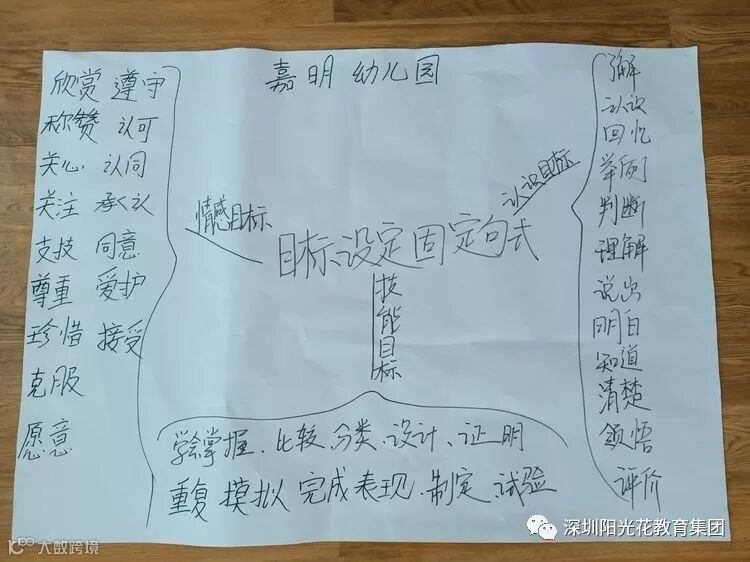 嘉明幼儿园
目标设定固定句式
情感目标
欣赏 遵守
称赞 认可
关心 认同
关注 承认
支技 同意
尊重 爱护
珍惜 接受
克服
愿意
技能目标
学会掌握、比较、分类、设计、证明
重复 摸拟 完成表现、制定、试验
认识目标
了解
认识
回忆
举例
判断
理解
说出
明白
知道
清楚
领悟
评价
大数跨境
深圳阳光花教育集团